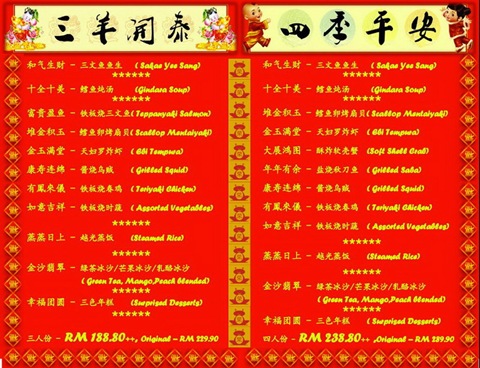 三羊開泰
和气生财 - 三文鱼鱼生 ( Sakae Yee Sang)
******
十全十美 - 鳕鱼炖汤 (Gindara Soup)
******
富貴盈鱼 - 铁板烧三文鱼( Teppanyaki Salmon)
堆金积玉 - 鳕鱼卵烤扇贝( Scallop Mentaiyaki)
金玉满堂 - 天妇罗炸虾 ( Ebi Tempura)
康寿连绵 - 酱烧乌贼 ( Grilled Squid)
有鳳來儀 - 铁板烧春鸡 ( Teriyaki Chicken)
如意吉祥 - 铁板烧时蔬 ( Assorted Vegetables)
******
蒸蒸日上 - 越光蒸饭 (Steamed Rice)
******
金沙翡翠 - 绿茶冰沙/芒果冰沙/乳酪冰沙
( Green Tea, Mango,Peach blended)
******
幸福团圆 - 三色年糕 (Surprised Desserts)
三人份 - RM 188.80++, Original - RM 229.90
四季平安
和气生财 - 三文鱼鱼生 ( Sakae Yee Sang)
******
十全十美 - 鳕鱼炖汤 (Gindara Soup)
******
堆金积玉 - 鳕鱼卵烤扇贝( Scallop Mentaiyaki)
金玉满堂 - 天妇罗炸虾 ( Ebi Tempura)
大展鸿图 - 酥炸软壳蟹 (Soft Shell Crab)
年年有余 - 盐烧秋刀鱼 ( Grilled Saba)
康寿连绵 - 酱烧乌贼 ( Grilled Squid)
有鳳來儀 - 铁板烧春鸡 ( Teriyaki Chicken)
如意吉祥 - 铁板烧时蔬 ( Assorted Vegetables)
******
蒸蒸日上 - 越光蒸饭 (Steamed Rice)
******
金沙翡翠 - 绿茶冰沙/芒果冰沙/乳酪冰沙
( Green Tea, Mango,Peach blended)
******
幸福团圆 - 三色年糕 (Surprised Desserts)
四人份 - RM 238.80++, Original - RM 279.90